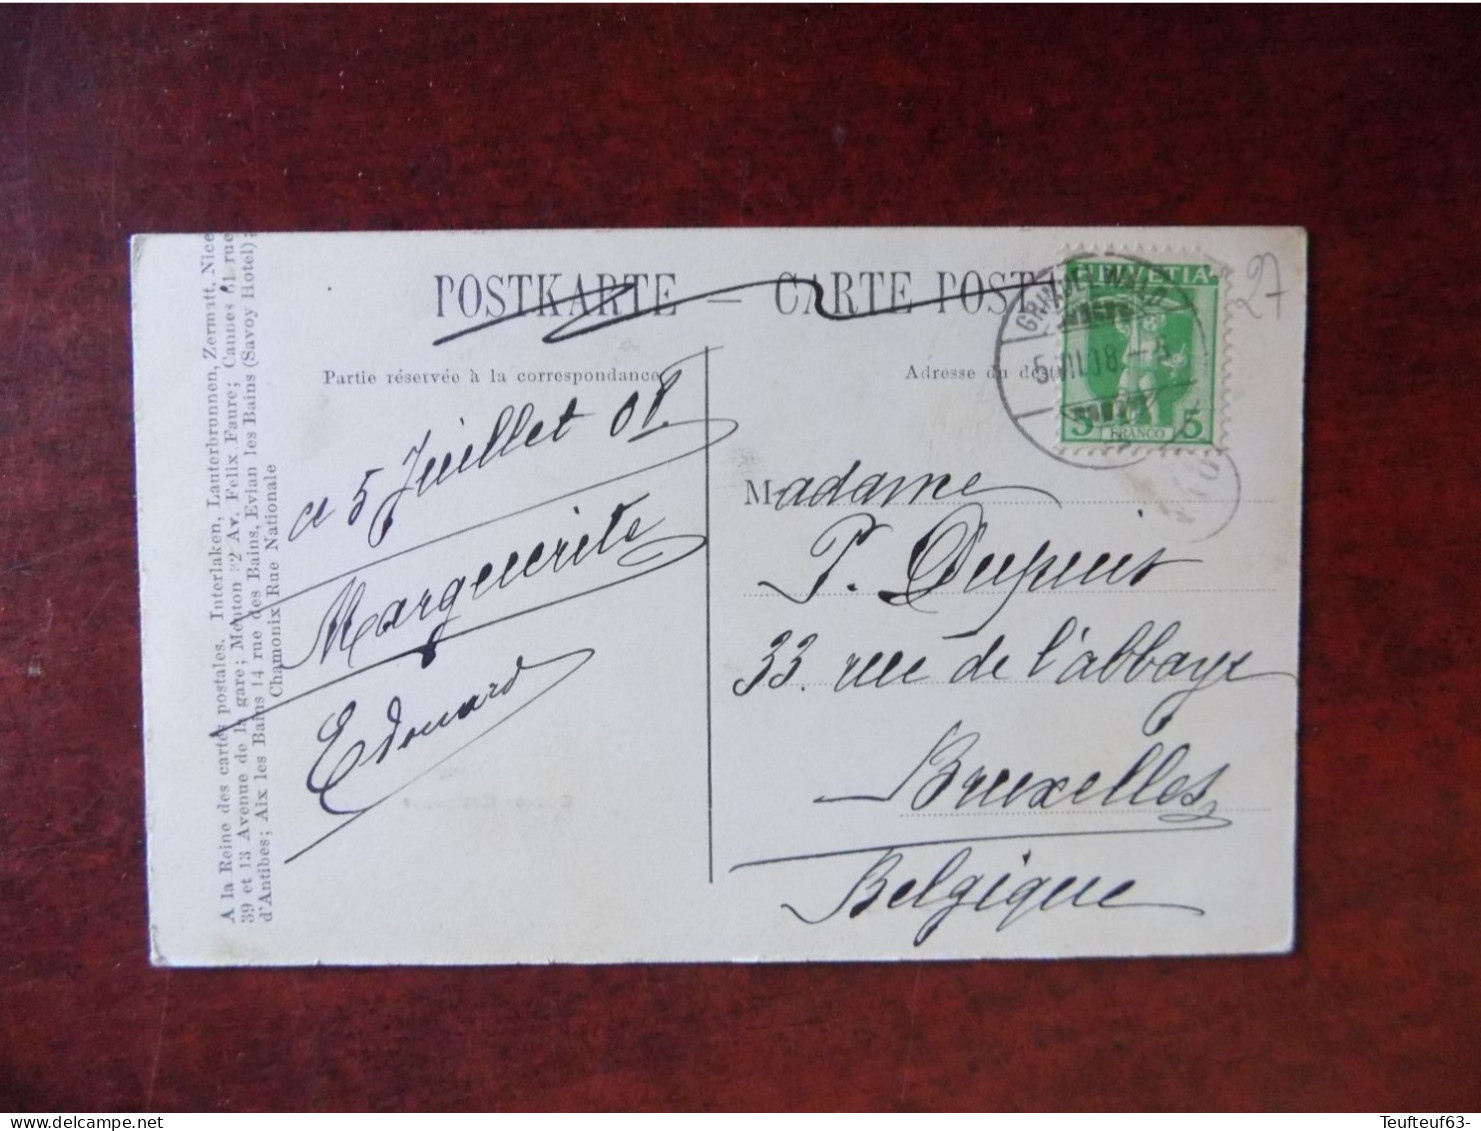 POSTKARTE — CARTE POST
Partie réservée à la correspondance
Adresse du
ce 5 Juillet 08.
Marguerite
Edouard
Madame
P. Dupuis
33. rue de l'abbaye
Bruxelles
Belgique
HELVETIA
5 FRANCO 5
GRINDELWALD
5.VII.08 –
27
A la Reine des cartes postales. Interlaken, Lauterbrunnen, Zermatt, Nice
39 et 13 Avenue de la gare; Menton 2 Av. Felix Faure; Cannes 61 rue
d'Antibes; Aix les Bains 14 rue des Bains, Evian les Bains (Savoy Hotel);
Chamonix Rue Nationale
Teufteuf63-